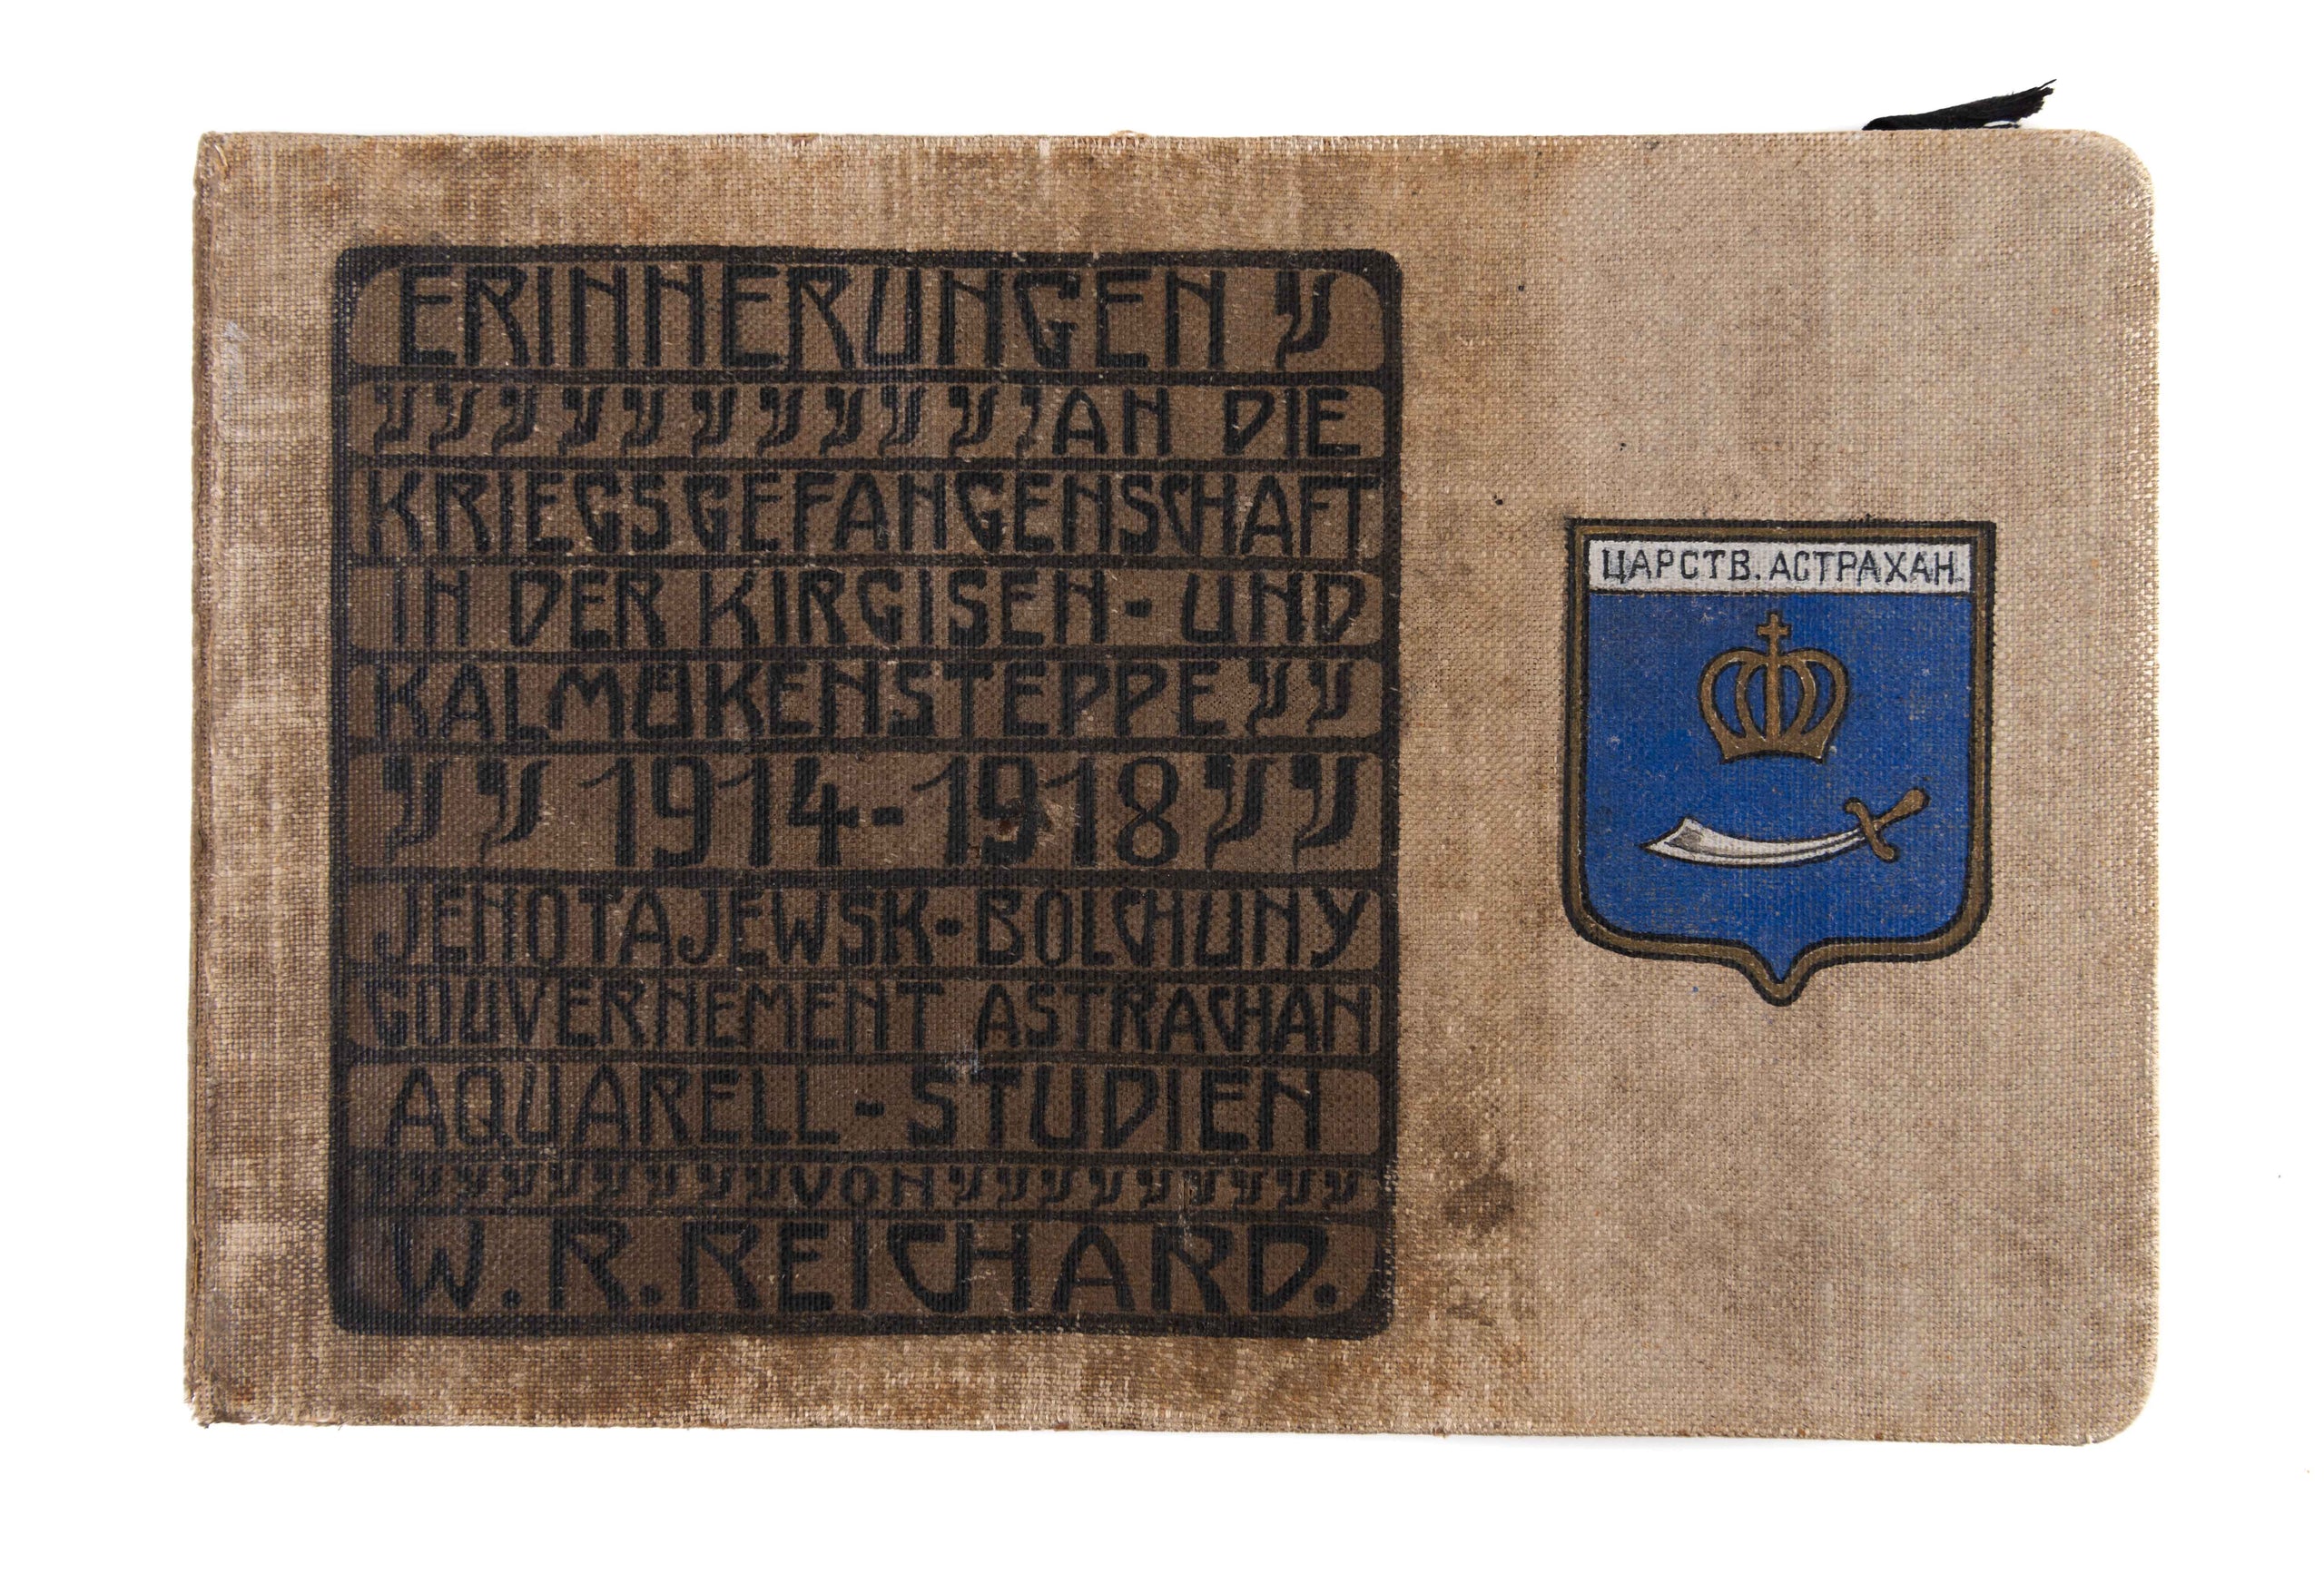 ERINNERUNGEN
AN DIE
KRIEGSGEFANGENSCHAFT
IN DER KIRGISEN - UND
KALMÜKENSTEPPE
1914-1918
JENOTAJEWSK-BOLCHUNY
GOUVERNEMENT ASTRACHAN
AQUARELL - STUDIEN
VON
W. R. REICHARD.
ЦАРСТВ. АСТРАХАН.